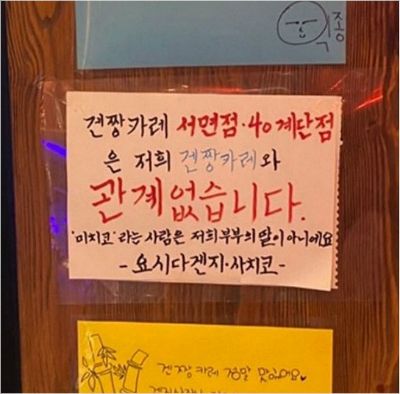 종
겐짱카레 서면점·40계단점
은 저희 겐짱카레와
관계없습니다.
'미치코' 라는 사람은 저희부부의 딸이 아니에요
- 요시다겐지·사치코 -
겐짱카레 정말 맛있어요♥